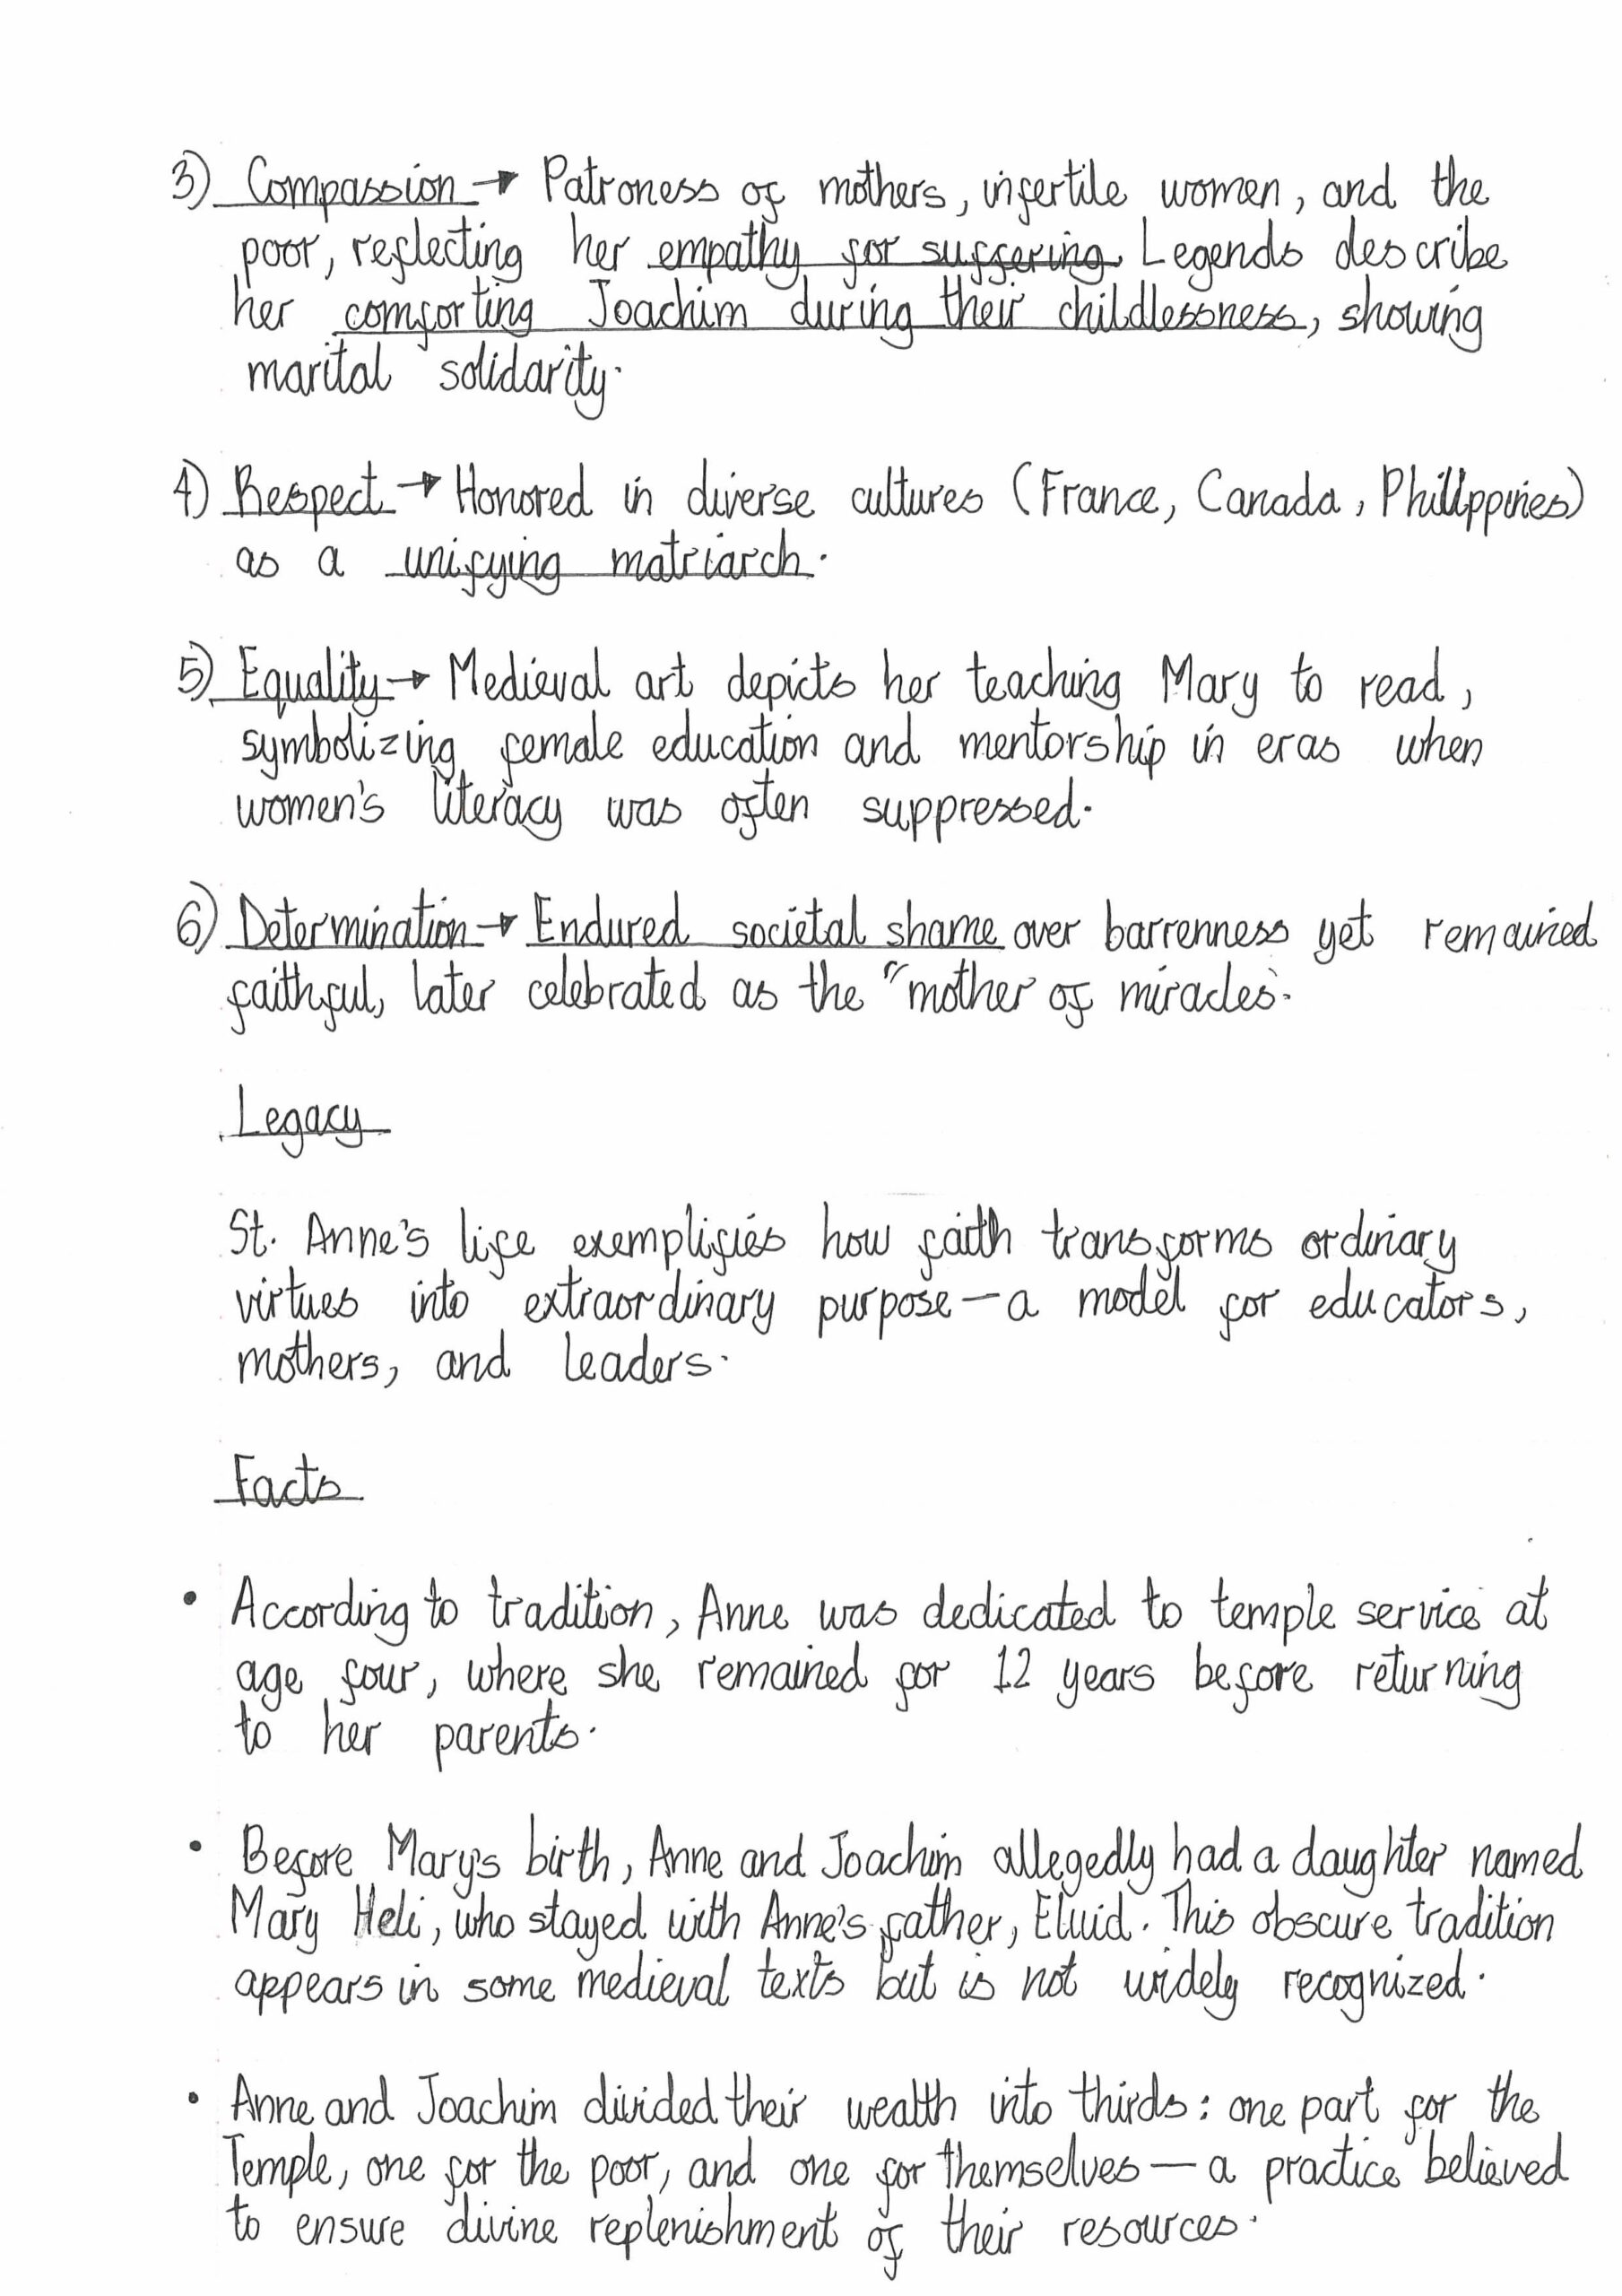 3) Compassion → Patroness of mothers, infertile women, and the
poor, reflecting her empathy for suffering. Legends describe
her comforting Joachim during their childlessness, showing
marital solidarity.
4) Respect → Honored in diverse cultures (France, Canada, Phillppines)
as a unifying matriarch.
5) Equality → Medieval art depicts her teaching Mary to read,
symbolizing female education and mentorship in eras when
women's literacy was often suppressed.
6) Determination → Endured societal shame over barrenness yet remained
faithful, later celebrated as the "mother of miracles.
Legacy
St. Anne's life exemplifies how faith transforms ordinary
virtues into extraordinary purpose—a model for educators,
mothers, and leaders.
Facts
• According to tradition, Anne was dedicated to temple service at
age four, where she remained for 12 years before returning
to her parents.
• Before Mary's birth, Anne and Joachim allegedly had a daughter named
Mary Heli, who stayed with Anne's father, Eluid. This obscure tradition
appears in some medieval texts but is not widely recognized.
• Anne and Joachim divided their wealth into thirds: one part for the
Temple, one for the poor, and one for themselves—a practice believed
to ensure divine replenishment of their resources.